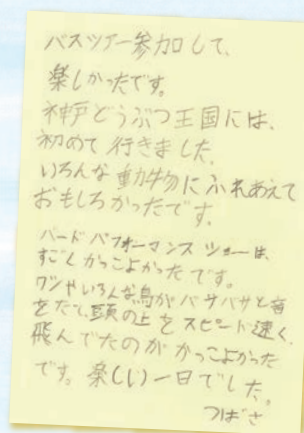 バスツアー参加して、
楽しかったです。
神戸どうぶつ王国には、
初めて行きました。
いろんな動物にふれあえて
おもしろかったです。
バードパフォーマンスショーは、
すごくかっこよかったです。
ワシやいろんな鳥がバサバサと音
をたて、頭の上をスピード速く、
飛んでたのがかっこよかった
です。楽しい一日でした。
つばさ